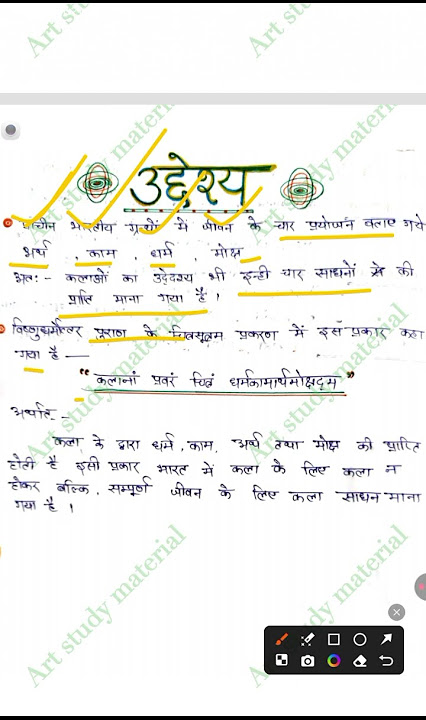 Art study material
Art study material
उद्देश्य
प्राचीन भारतीय ग्रन्थों में जीवन के चार प्रयोजन बताए गये
अर्थ, काम, धर्म, मोक्ष
अतः- कलाओं का उद्देश्य भी इन्ही चार साधनों की
प्राप्ति माना गया है।
विष्णुधर्मोत्तर पुराण के चित्रसूत्रम प्रकरण में इस प्रकार कहा
गया है —
"कलानां प्रवरं चित्रं धर्मकामार्थमोक्षदम"
अर्थात -
कला के द्वारा धर्म, काम, अर्थ तथा मोक्ष की प्राप्ति
होती है इसी प्रकार भारत में कला के लिए कला न
होकर बल्कि, सम्पूर्ण जीवन के लिए कला साधन माना
गया है।
Art study material
Art study material
Art study material
Art study material
Art study material
Art study material